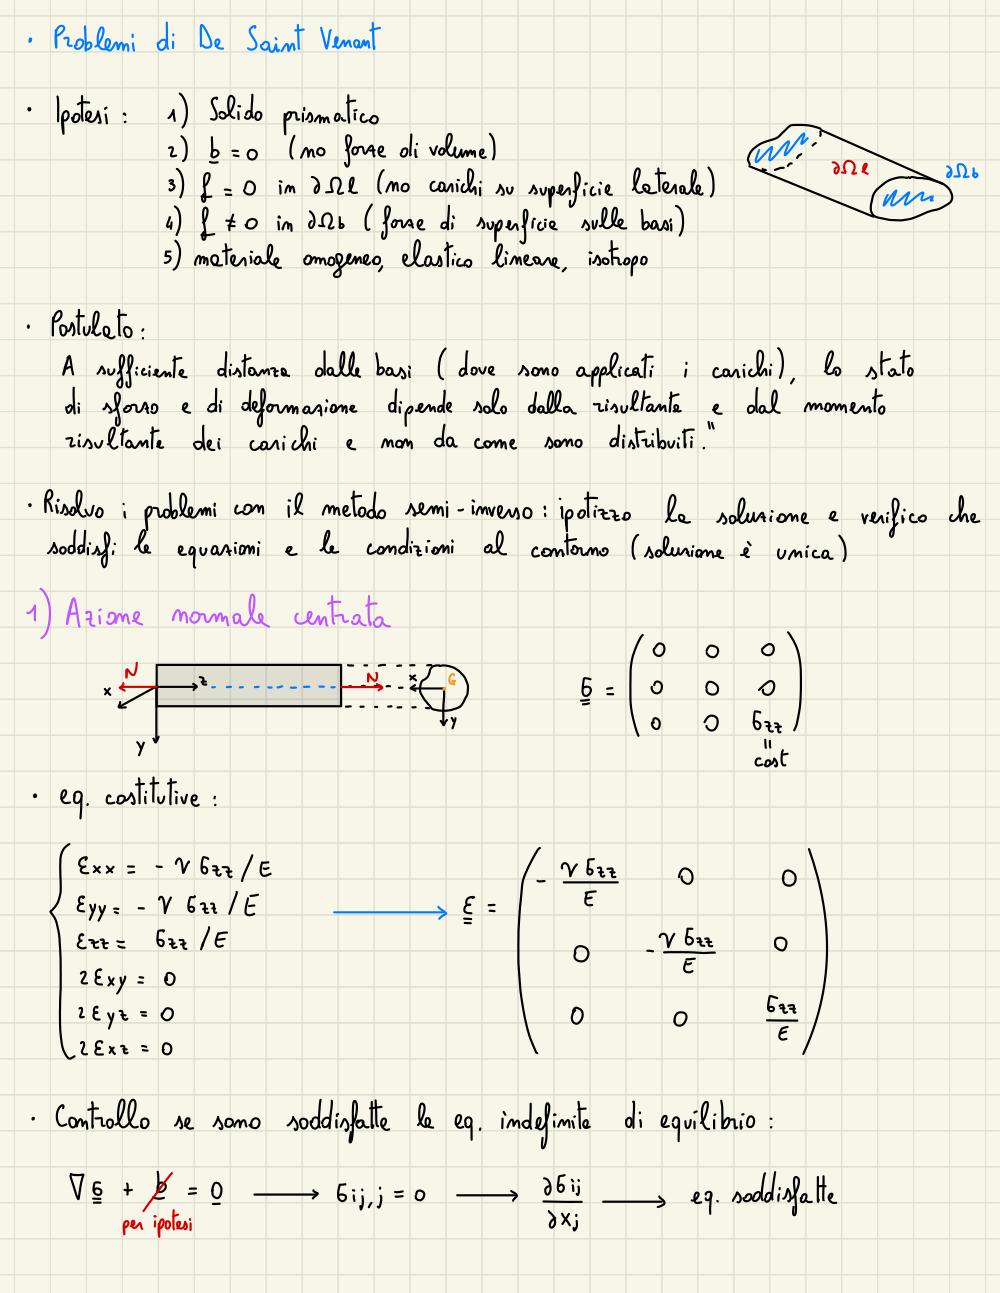 · Problemi di De Saint Venant
· Ipotesi : 1) Solido prismatico
2) b = 0 (no forze di volume)
3) f = 0 in ∂Ωl (no carichi su superficie laterale)
4) f ≠ 0 in ∂Ωb (forze di superficie sulle basi)
5) materiale omogeneo, elastico lineare, isotropo
∂Ωl
∂Ωb
· Postulato :
A sufficiente distanza dalle basi (dove sono applicati i carichi), lo stato
di sforzo e di deformazione dipende solo dalla risultante e dal momento
risultante dei carichi e non da come sono distribuiti."
· Risolvo i problemi con il metodo semi-inverso : ipotizzo la soluzione e verifico che
soddisfi le equazioni e le condizioni al contorno (soluzione è unica)
1) Azione normale centrata
N x z y N x G y
σ = ( 0 0 0
0 0 0
0 0 σzz )
=
cost
· eq. costitutive :
εxx = - ν σzz / E
εyy = - ν σzz / E
εzz = σzz / E
2εxy = 0
2εyz = 0
2εxz = 0
→ ε = ( - ν σzz / E 0 0
0 - ν σzz / E 0
0 0 σzz / E )
· Controllo se sono soddisfatte le eq. indefinite di equilibrio :
∇σ + b = 0 → σij,j = 0 → ∂σij / ∂xj → eq. soddisfatte
per ipotesi